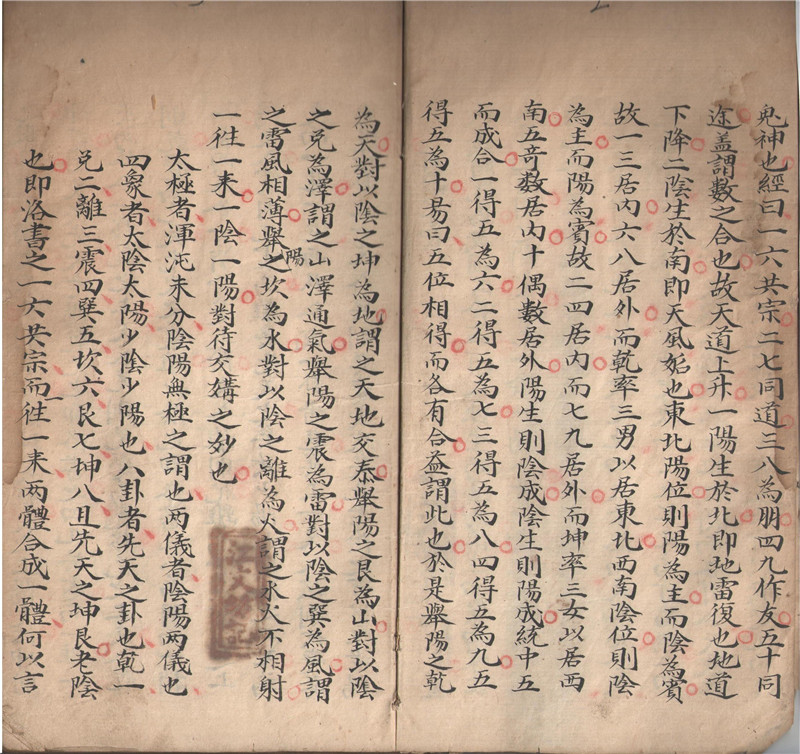 鬼神也經曰一六共宗二七同道三八為朋四九作友五十同
途盖謂數之合也故天道上升一陽生於北即地雷復也地道
下降二陰生於南即天風姤也東北陽位則陽為主而陰為賓
故一三居内六八居外而乾率三男以居東北西南陰位則陰
為主而陽為賓故二四居内而七九居外而坤率三女以居西
南五竒数居内十偶數居外陽生則陰成陰生則陽成統中五
而成合一得五為六二得五為七三得五為八四得五為九五
得五為十易曰五位相得而各有合益謂此也於是舉陽之乾
為天對以陰之坤為地謂之天地交泰舉陽之艮為山對以陰
之兑為澤謂之山澤通氣舉陽之震為雷對以陰之巽為風謂
之雷風相薄舉陽之坎為水對以陰之離為火謂之水火不相射
一徃一来一陰一陽對待交媾之妙也
太極者渾沌未分陰陽無極之謂也两儀者陰陽两儀也
四象者太陰太陽少陰少陽也八卦者先天之卦也乾一
兑二離三震四巽五坎六艮七坤八且先天之坤艮老陰
也即洛書之一六共宗而一徃一来两體合成一體何以言